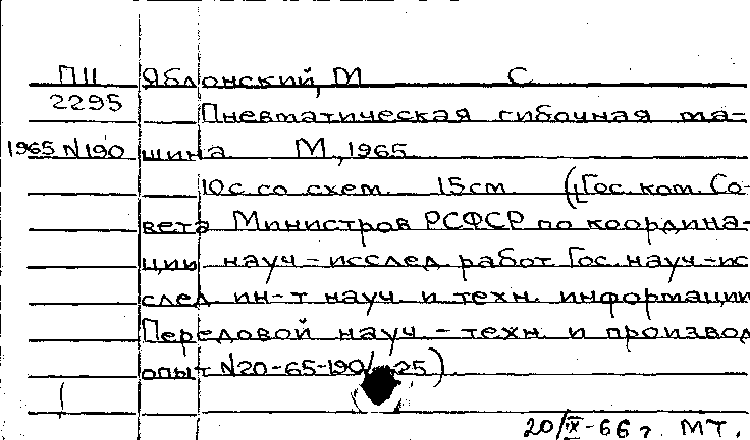 ПII Яблонский, М С
2295 Пневматическая гибочная ма-
1965 N190 шина М., 1965
10 с. со схем. 15 см. (Гос. ком. Со-
вета Министров РСФСР по координа-
ции науч-исслед. работ Гос. науч-ис
след ин-т науч. и техн. информации
Передовой науч.-техн и производ
опыт N20-65-190/ 25).
20/IX-66 г. МТ.